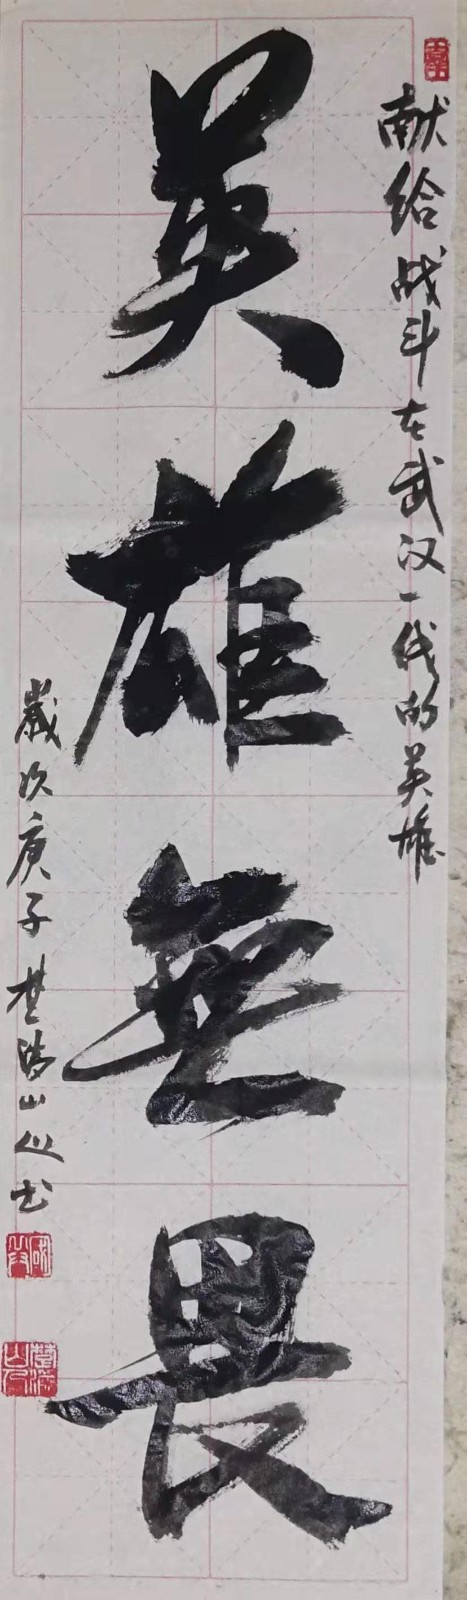 献给战斗在武汉一代的英雄
英雄無畏
歲次庚子楚鴻山人书